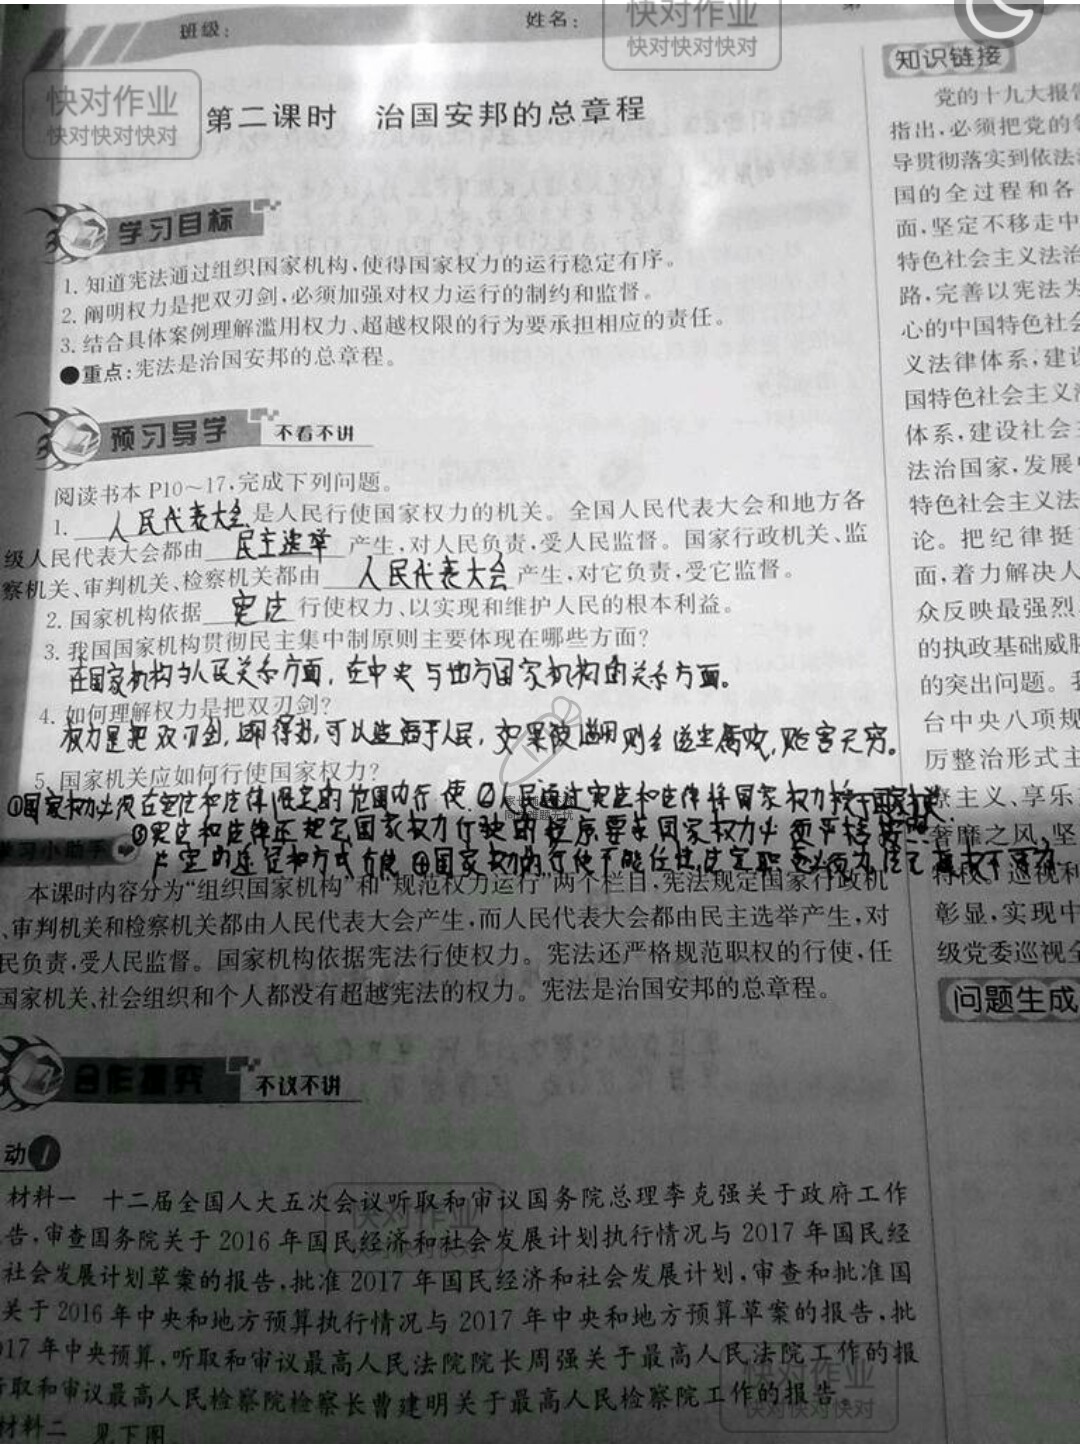 班级:
姓名:
快对作业
快对快对快对
快对作业
快对快对快对
第二课时 治国安邦的总章程
学习目标
1. 知道宪法通过组织国家机构,使得国家权力的运行稳定有序。
2. 阐明权力是把双刃剑,必须加强对权力运行的制约和监督。
3. 结合具体案例理解滥用权力、超越权限的行为要承担相应的责任。
●重点:宪法是治国安邦的总章程。
预习导学 不看不讲
阅读书本 P10~17,完成下列问题。
1. 人民代表大会 是人民行使国家权力的机关。全国人民代表大会和地方各
级人民代表大会都由 民主选举 产生,对人民负责,受人民监督。国家行政机关、监
察机关、审判机关、检察机关都由 人民代表大会 产生,对它负责,受它监督。
2. 国家机构依据 宪法 行使权力、以实现和维护人民的根本利益。
3. 我国国家机构贯彻民主集中制原则主要体现在哪些方面?
在国家机构与人民关系方面,在中央与地方国家机构的关系方面。
4. 如何理解权力是把双刃剑?
权力是把双刃剑,运用得好,可以造福于人民,如果被滥用则会滋生腐败,贻害无穷。
5. 国家机关应如何行使国家权力?
①国家权力必须在宪法和法律限定的范围内行使②人民通过宪法和法律将国家权力授予国家机关
③宪法和法律还规定国家权力行使的程序要求国家权力必须严格按照
法定的途径和方式行使④国家权力的行使不能任性法定职责必须为法无授权不可为
学习小助手
本课时内容分为“组织国家机构”和“规范权力运行”两个栏目,宪法规定国家行政机
、审判机关和检察机关都由人民代表大会产生,而人民代表大会都由民主选举产生,对
民负责,受人民监督。国家机构依据宪法行使权力。宪法还严格规范职权的行使,任
国家机关、社会组织和个人都没有超越宪法的权力。宪法是治国安邦的总章程。
合作探究 不议不讲
动1
材料一 十二届全国人大五次会议听取和审议国务院总理李克强关于政府工作
告,审查国务院关于 2016 年国民经济和社会发展计划执行情况与 2017 年国民经
社会发展计划草案的报告,批准 2017 年国民经济和社会发展计划,审查和批准国
关于 2016 年中央和地方预算执行情况与 2017 年中央和地方预算草案的报告,批
017 年中央预算,听取和审议最高人民法院院长周强关于最高人民法院工作的报
取和审议最高人民检察院检察长曹建明关于最高人民检察院工作的报告。
材料二 见下图
快对作业
快对快对快对
快对作业
快对快对快对
知识链接
党的十九大报告
指出,必须把党的领
导贯彻落实到依法治
国的全过程和各
面,坚定不移走中
特色社会主义法治
路,完善以宪法为
心的中国特色社会
义法律体系,建设
国特色社会主义法
体系,建设社会
法治国家,发展中
特色社会主义法
论。把纪律挺
面,着力解决人
众反映最强烈
的执政基础威胁
的突出问题。
台中央八项规
厉整治形式主
僚主义、享乐
奢靡之风,坚
特权。巡视利
彰显,实现中
级党委巡视全
问题生成